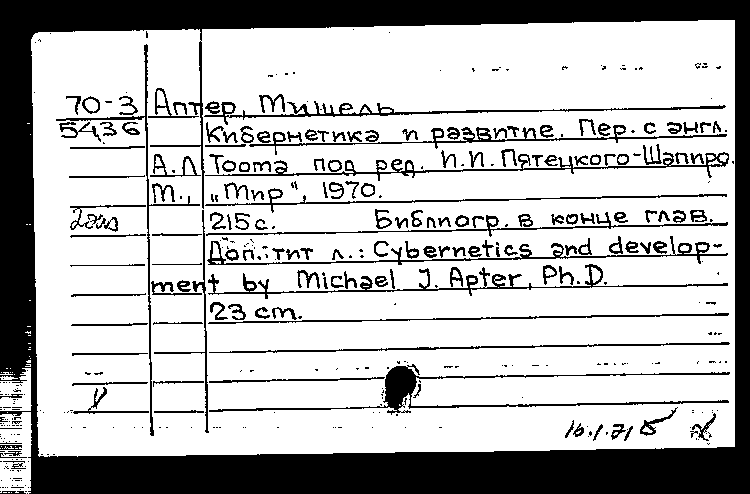 70-3 Аптер, Мишель
5436 Кибернетика и развитие. Пер. с англ.
А.Л Тоома под ред. И.И. Пятецкого-Шапиро.
М., „Мир", 1970.
215 с. Библиогр. в конце глав.
Доп. тит л.: Cybernetics and develop-
ment by Michael J. Apter, Ph.D.
23 cm.